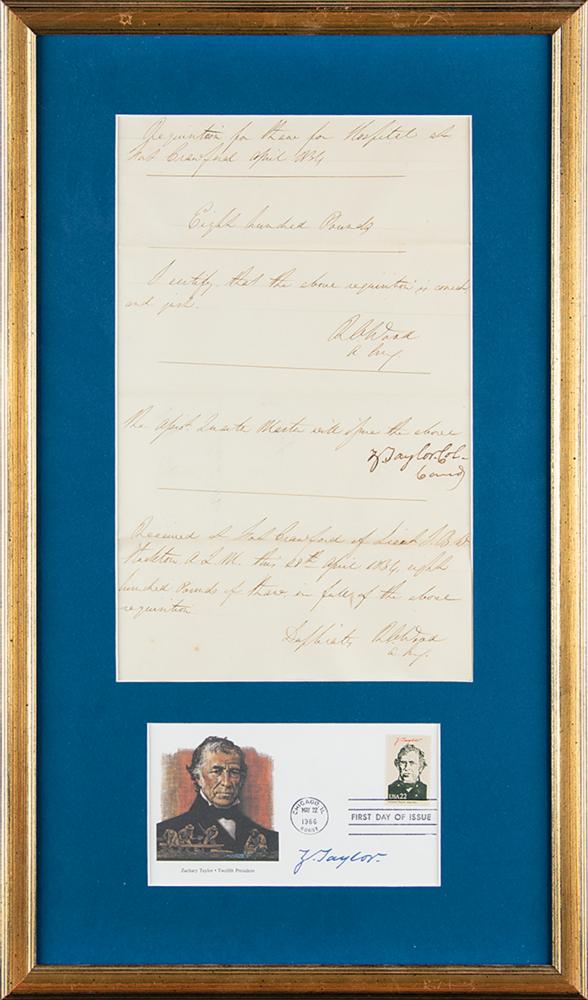 Requisition for straw for Hospital at
Fort Crawford April 1834
Eight hundred Pounds
I certify that the above requisition is correct
and just.
R C Wood
A Surg.
The Assist. Quarter Master will issue the above
Z. Taylor Col.
Comd
Received at Fort Crawford of Lieut T. B. W
Stockton A. Q. M. this 28th April 1834 eight
hundred Pounds of straw in full of the above
requisition
Duplicate R C Wood
A Surg.
Z. Taylor
USA 22
CHICAGO IL
MAY 22
1986
60607
FIRST DAY OF ISSUE
Z. Taylor.
Zachary Taylor • Twelfth President